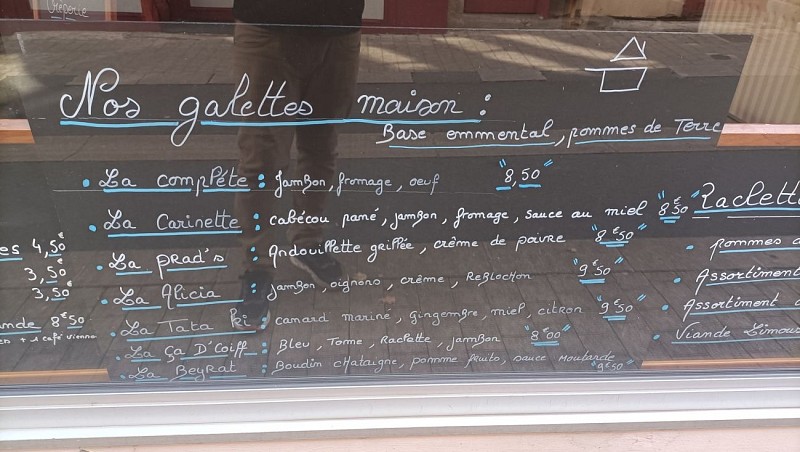 Crêperie
Nos galettes maison :
Base emmental, pommes de Terre
• La complète : Jambon, fromage, oeuf "8,50"
• La Carinette : cabécou pané, jambon, fromage, sauce au miel "8€50"
• La prad's : Andouillette grillée, crême de poivre "8€50"
• La Alicia : jambon, oignons, crême, Reblochon "9€50"
• La Tata Ki : canard mariné, gingembre, miel, citron "9€50"
• La ça D'Coiff : Bleu, Tome, Raclette, jambon "8€00"
• La Beyrat : Boudin chataigne, pomme fruits, sauce moutarde "9€50"
es 4,50€
3,50€
3,50€
ande 8€50
en + 1 café vienno
Raclette
• pommes d
• Assortiment
• Assortiment d
• Viande Limous